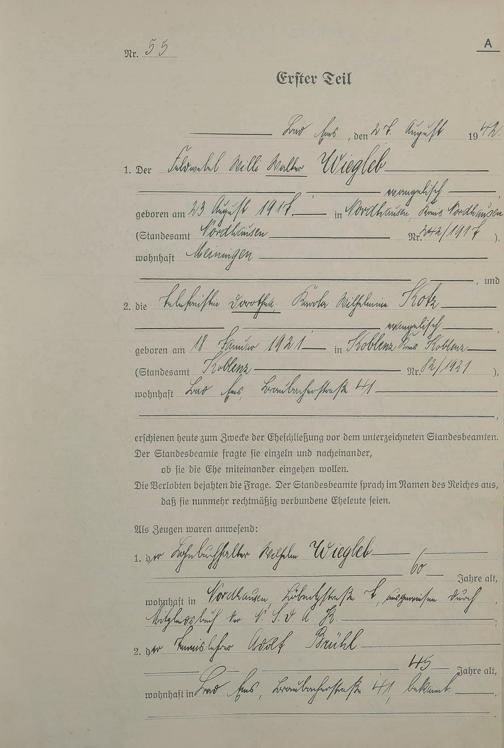 A
Nr. 55
Erster Teil
Bad Ems, den 27. August 1942
1. Der Feldwebel Willi Walter Wiegleb
evangelisch
geboren am 23 August 1917 in Nordhausen Kreis Nordhausen
(Standesamt Nordhausen Nr. /1917 ),
wohnhaft Meiningen
, und
2. die Dorothea Karola Wilhelmine Kotz
evangelisch
geboren am 18 Januar 1921 in Koblenz Kreis Koblenz
(Standesamt Koblenz Nr. 82/1921 ),
wohnhaft Bad Ems Braubacherstraße 41
erschienen heute zum Zwecke der Eheschließung vor dem unterzeichneten Standesbeamten.
Der Standesbeamte fragte sie einzeln und nacheinander,
ob sie die Ehe miteinander eingehen wollen.
Die Verlobten bejahten die Frage. Der Standesbeamte sprach im Namen des Reiches aus,
daß sie nunmehr rechtmäßig verbundene Eheleute seien.
Als Zeugen waren anwesend:
1. der Lohnbuchhalter Wilhelm Wiegleb
60 Jahre alt,
wohnhaft in Nordhausen, 7, ausgewiesen durch
Mitgliedsbuch der N.S.D.A.P.
2. der Tennislehrer Adolf Brühl
45 Jahre alt,
wohnhaft in Bad Ems, Braubacherstraße 41, bekannt